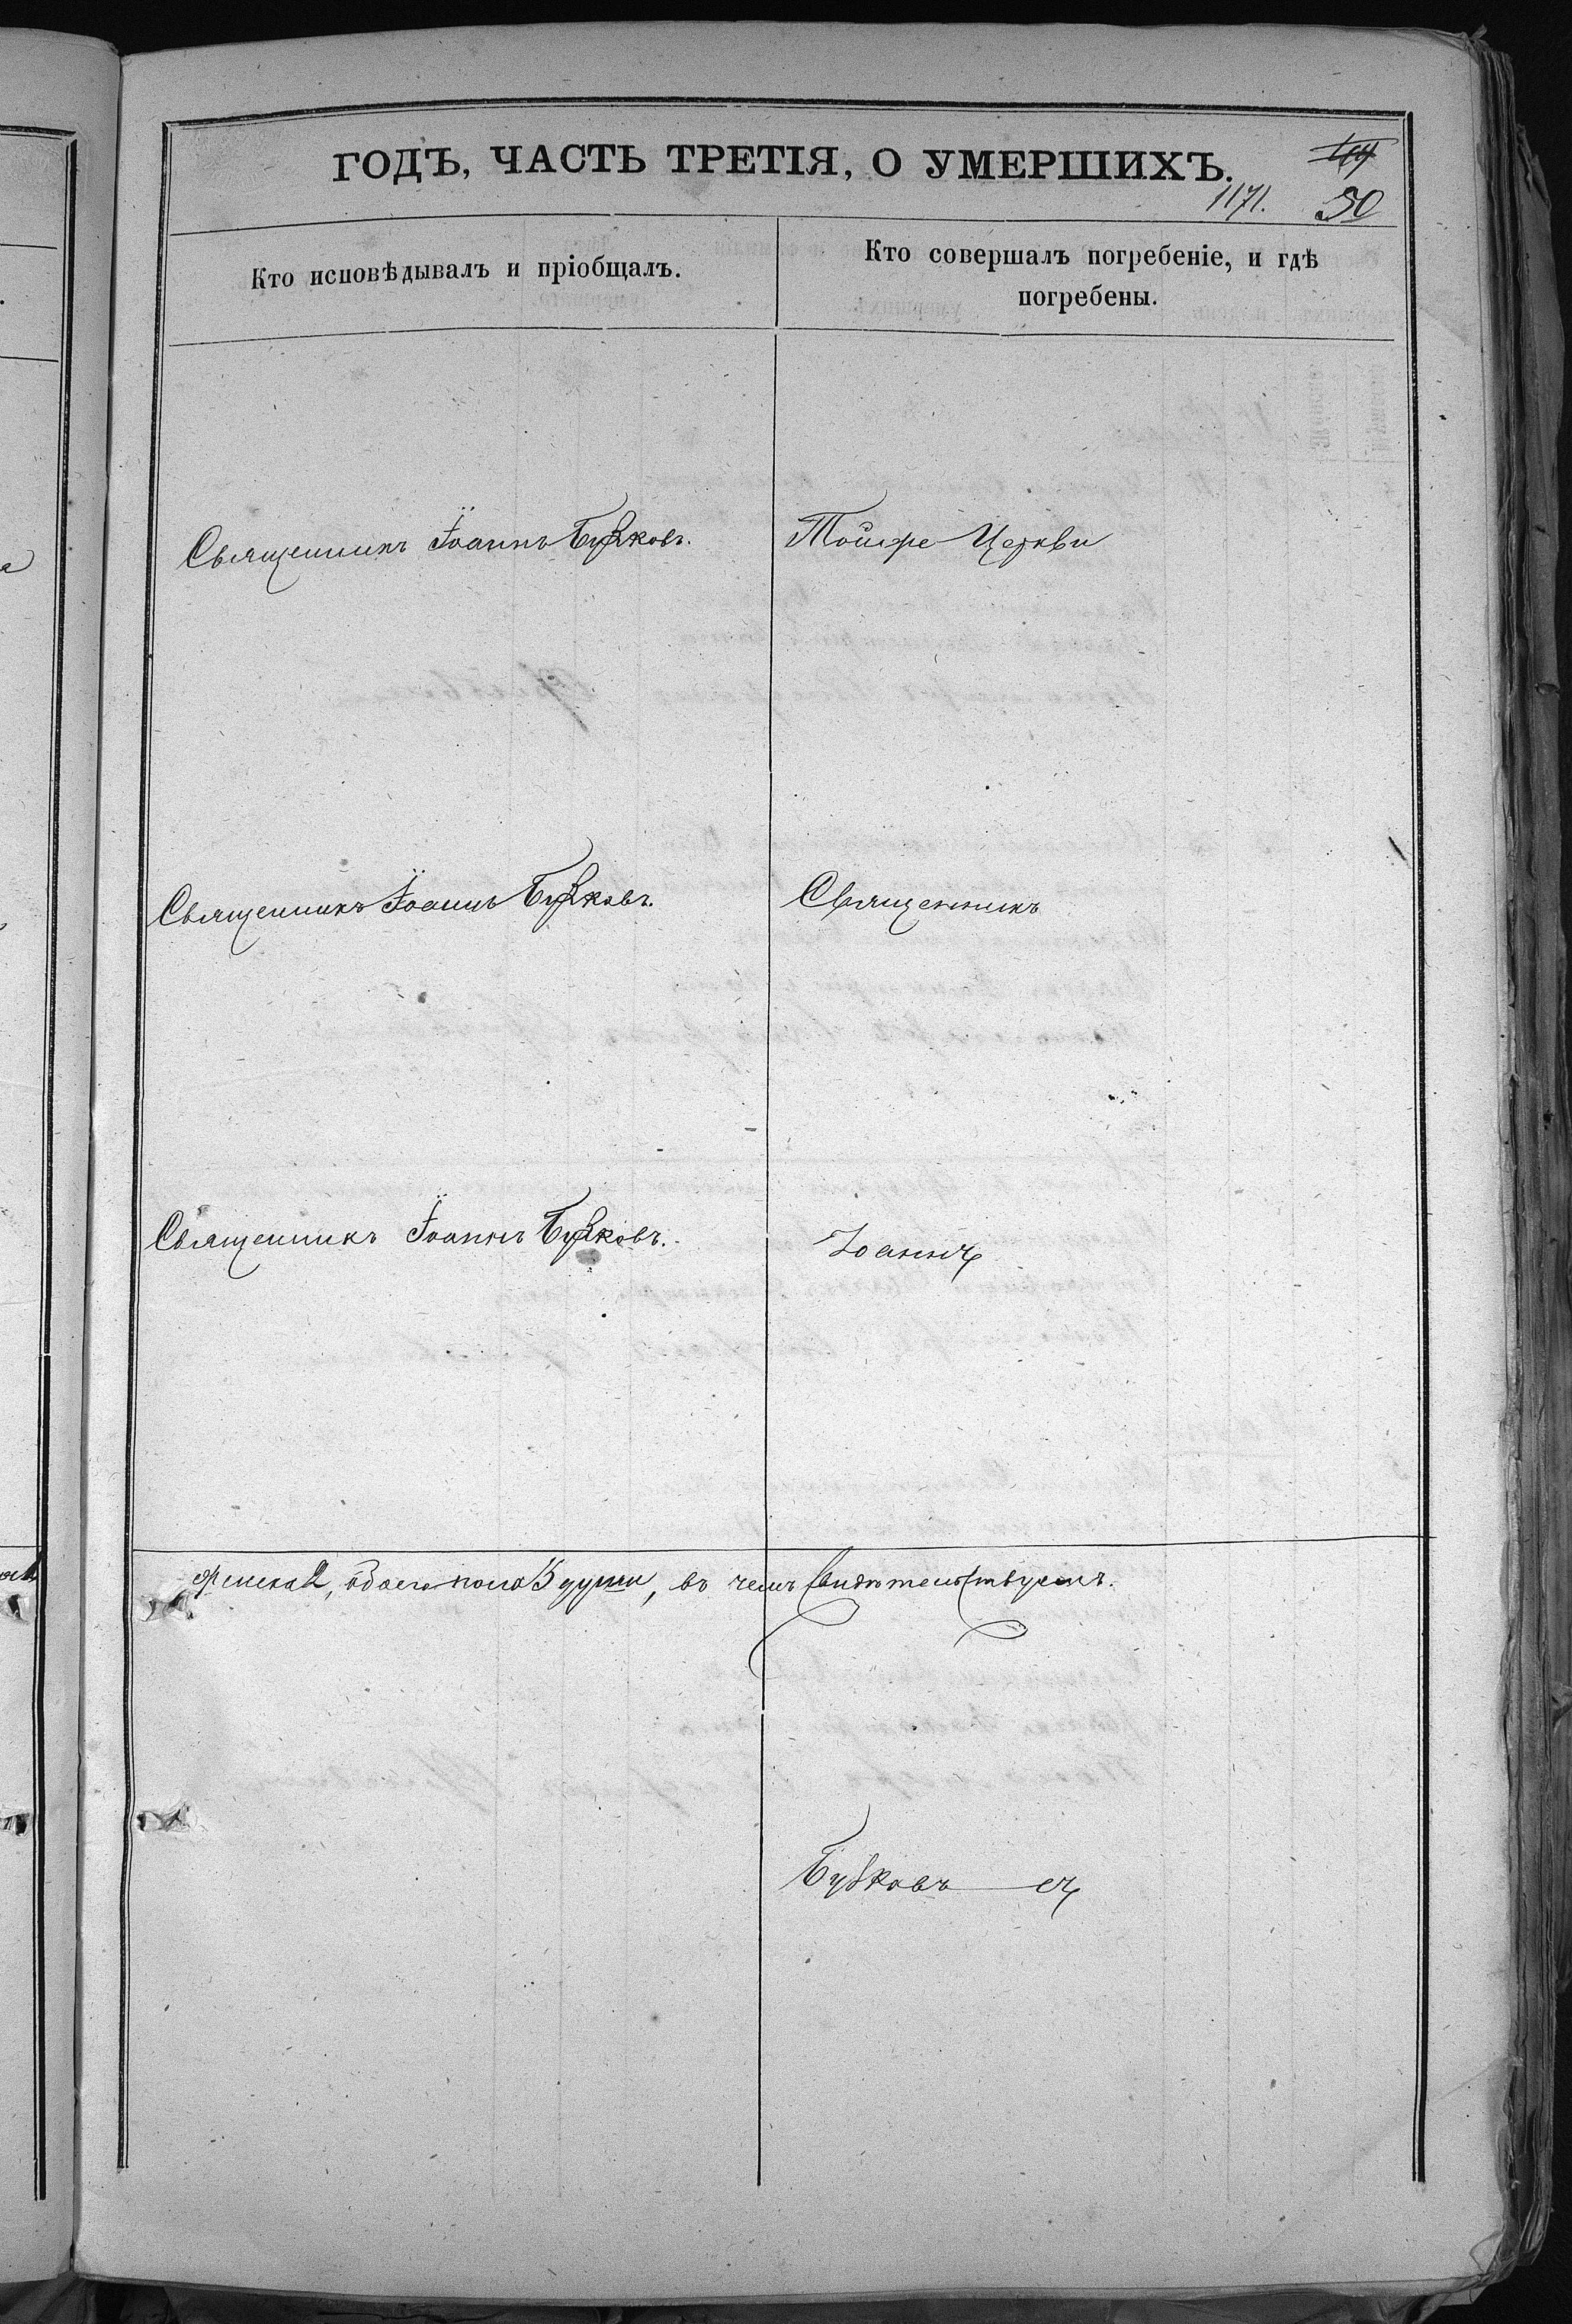 ГОДЪ, ЧАСТЬ ТРЕТІЯ, О УМЕРШИХЪ.
1171. 50
Кто исповѣдывалъ и пріобщалъ.
Кто совершалъ погребеніе, и гдѣ
погребены.
Священникъ Іоаннъ Бубковъ.
Тойже Церкви
Священникъ Іоаннъ Бубковъ.
Священникъ
Священникъ Іоаннъ Бубковъ.
Іоаннъ
женска 2, обоего пола 3 души, въ чемъ свидѣтельствуемъ.
Бубковъ